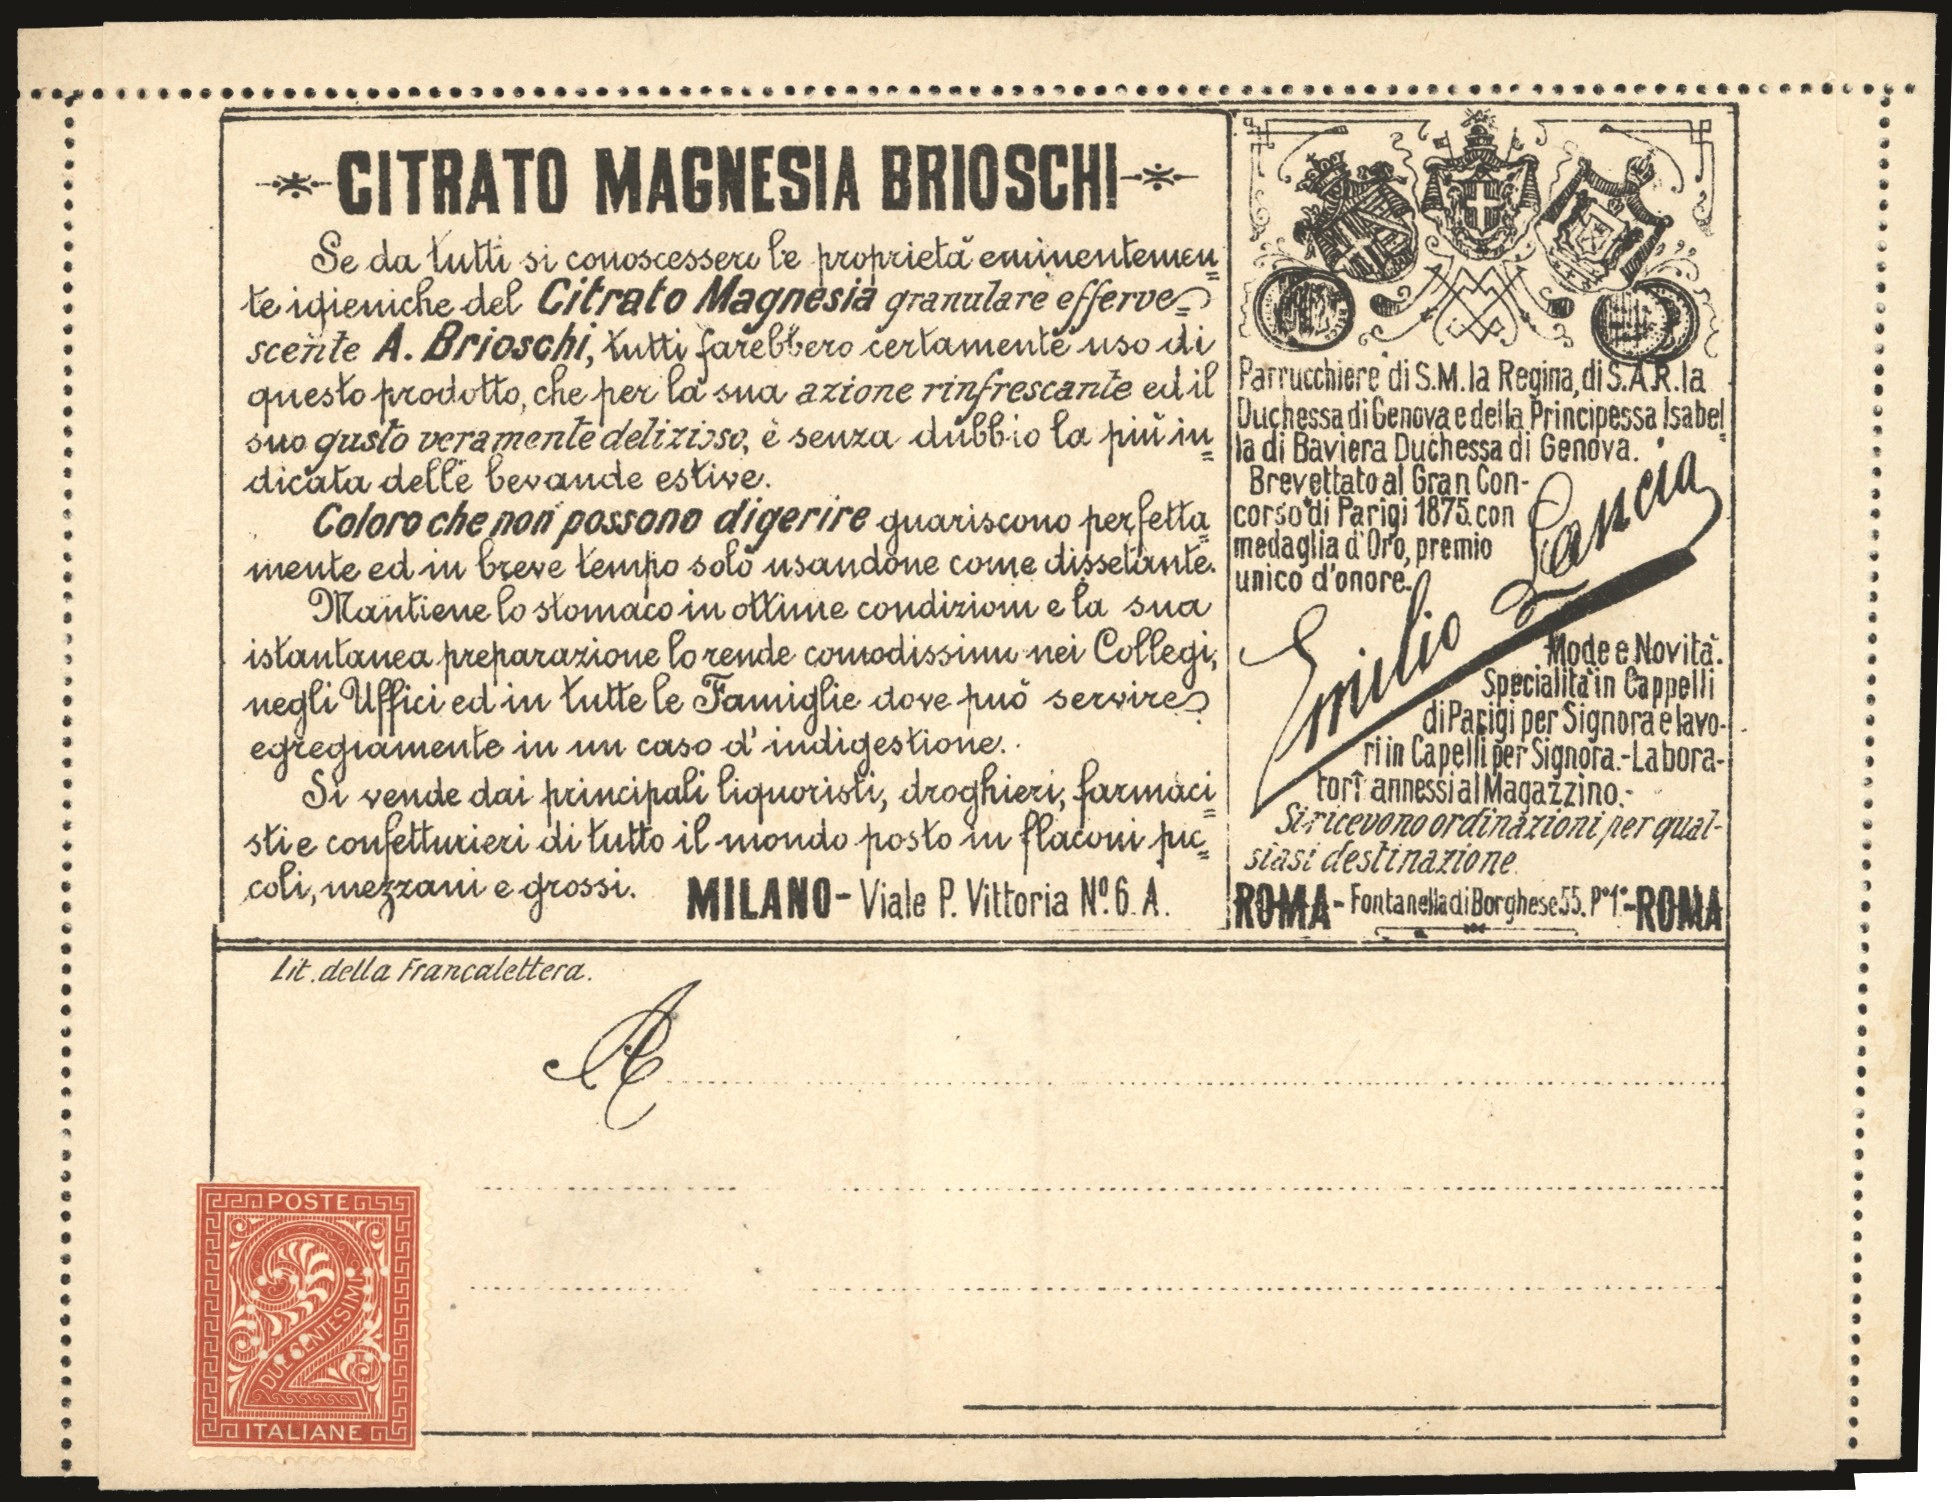 CITRATO MAGNESIA BRIOSCHI
Se da tutti si conoscessero le proprietà eminentemen=
te igieniche del Citrato Magnesia granulare efferve=
scente A. Brioschi, tutti farebbero certamente uso di
questo prodotto, che per la sua azione rinfrescante ed il
suo gusto veramente delizioso, è senza dubbio la più in=
dicata delle bevande estive.
Coloro che non possono digerire guariscono perfetta=
mente ed in breve tempo solo usandone come dissetante.
Mantiene lo stomaco in ottime condizioni e la sua
istantanea preparazione lo rende comodissimo nei Collegi,
negli Uffici ed in tutte le Famiglie dove può servire
egregiamente in un caso d'indigestione.
Si vende dai principali liquoristi, droghieri, farmaci=
sti e confetturieri di tutto il mondo posto in flaconi pic=
coli, mezzani e grossi. MILANO - Viale P. Vittoria Nº. 6. A.
Parrucchiere di S.M. la Regina, di S.A.R. la
Duchessa di Genova e della Principessa Isabel=
la di Baviera Duchessa di Genova.
Brevettato al Gran Con-
corso di Parigi 1875. con
medaglia d'Oro, premio
unico d'onore.
Emilio Lancia
Mode e Novità.
Specialità in Cappelli
di Parigi per Signora e lavo-
ri in Capelli per Signora.-Labora-
tori annessi al Magazzino.-
Si ricevono ordinazioni per qual-
siasi destinazione.
ROMA - Fontanella di Borghese 55. Pº 1º - ROMA
Lit. della Francalettera.
A
POSTE
DUE CENTESIMI
2
ITALIANE